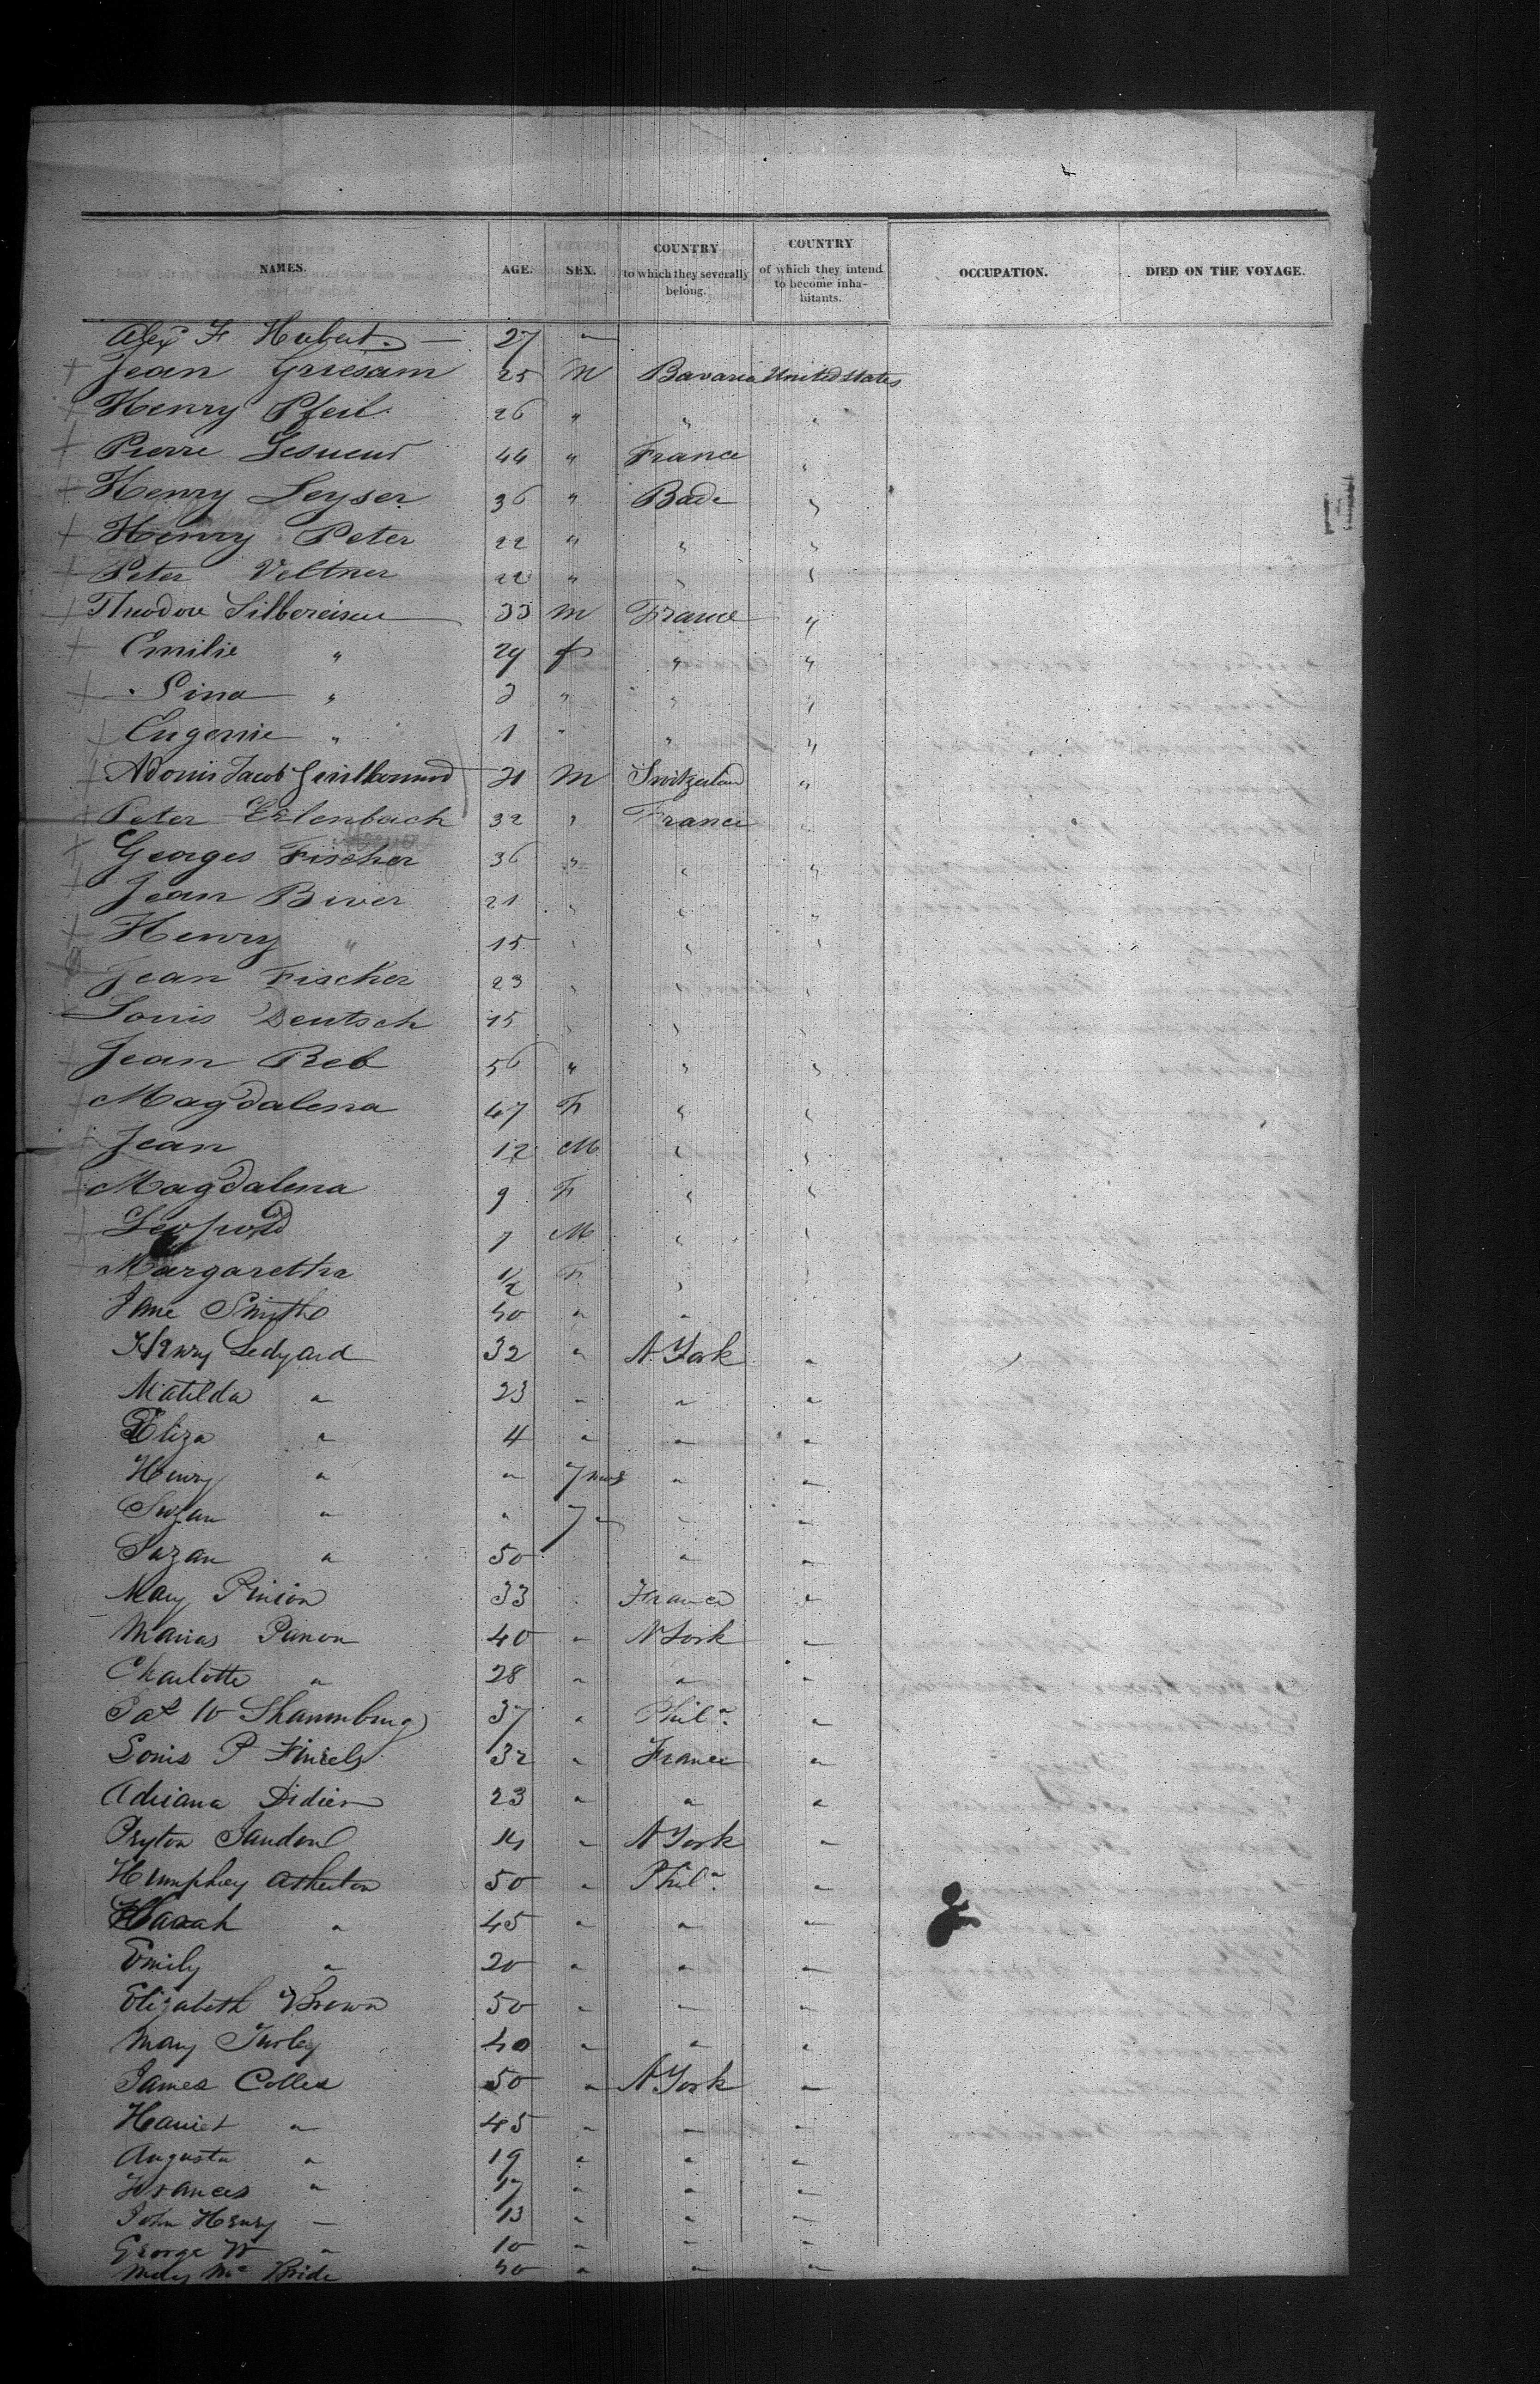 NAMES. AGE. SEX. COUNTRY to which they severally belong. COUNTRY of which they intend to become inhabitants. OCCUPATION. DIED ON THE VOYAGE.
Alex F Hubert 27 "
Jean Griesam 25 M Bavaria United States
Henry Pfeil 26 " " "
Pierre Lesueur 44 " France "
Henry Leyser 36 " Bade "
Henry Peter 22 " " "
Peter Veltner 22 " " "
Theodore Silbereisen 33 M France "
Emilie " 29 f " "
Lina " 3 " " "
Eugenie " 1 " " "
Adonis Jacob 31 M Switzerland "
Peter Erlenbach 32 " France "
Georges Fischer 36 " " "
Jean Biver 21 " " "
Henry " 15 " " "
Jean Fischer 23 " " "
Louis Deutsch 15 " " "
Jean Reb 56 " " "
Magdalena 47 F " "
Jean 12 M " "
Magdalena 9 F " "
Leopold 7 M " "
Margaretha 1/2 F " "
Jane Smith 40 " "
Henry Ledyard 32 " N. York "
Matilda " 23 " " "
Eliza " 4 " " "
Henry " " 7 mos " "
Suzan " " 7 " " "
Suzan " 50 " "
Mary Pinion 33 " France "
40 " N York "
Charlotte " 28 " " "
37 " Phila. "
Louis P 32 " France "
Adriana Didier 23 " " "
14 " N York "
Humphrey Atherton 50 " Phila. "
45 " " "
Emily " 20 " " "
Elizabeth Brown 50 " " "
Mary Turley 40 " " "
James Colles 50 " N York "
Harriet " 45 " " "
Augusta " 19 " " "
Frances " 17 " " "
John Henry " 13 " " "
George W " 10 " " "
Mary Mc Bride 40 " " "